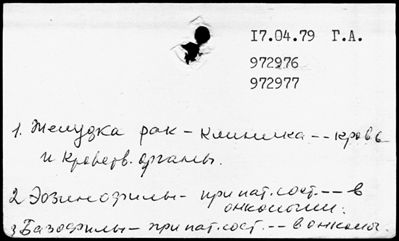 17.04.79 Г.А.
972976
972977
1. Желудка рак - клиника -- кровь
и кроветв. органы.
2 Эозинофилы - при пат. сост. --- в
онкологии.
3 Базофилы - при пат. сост. --- в онколог.